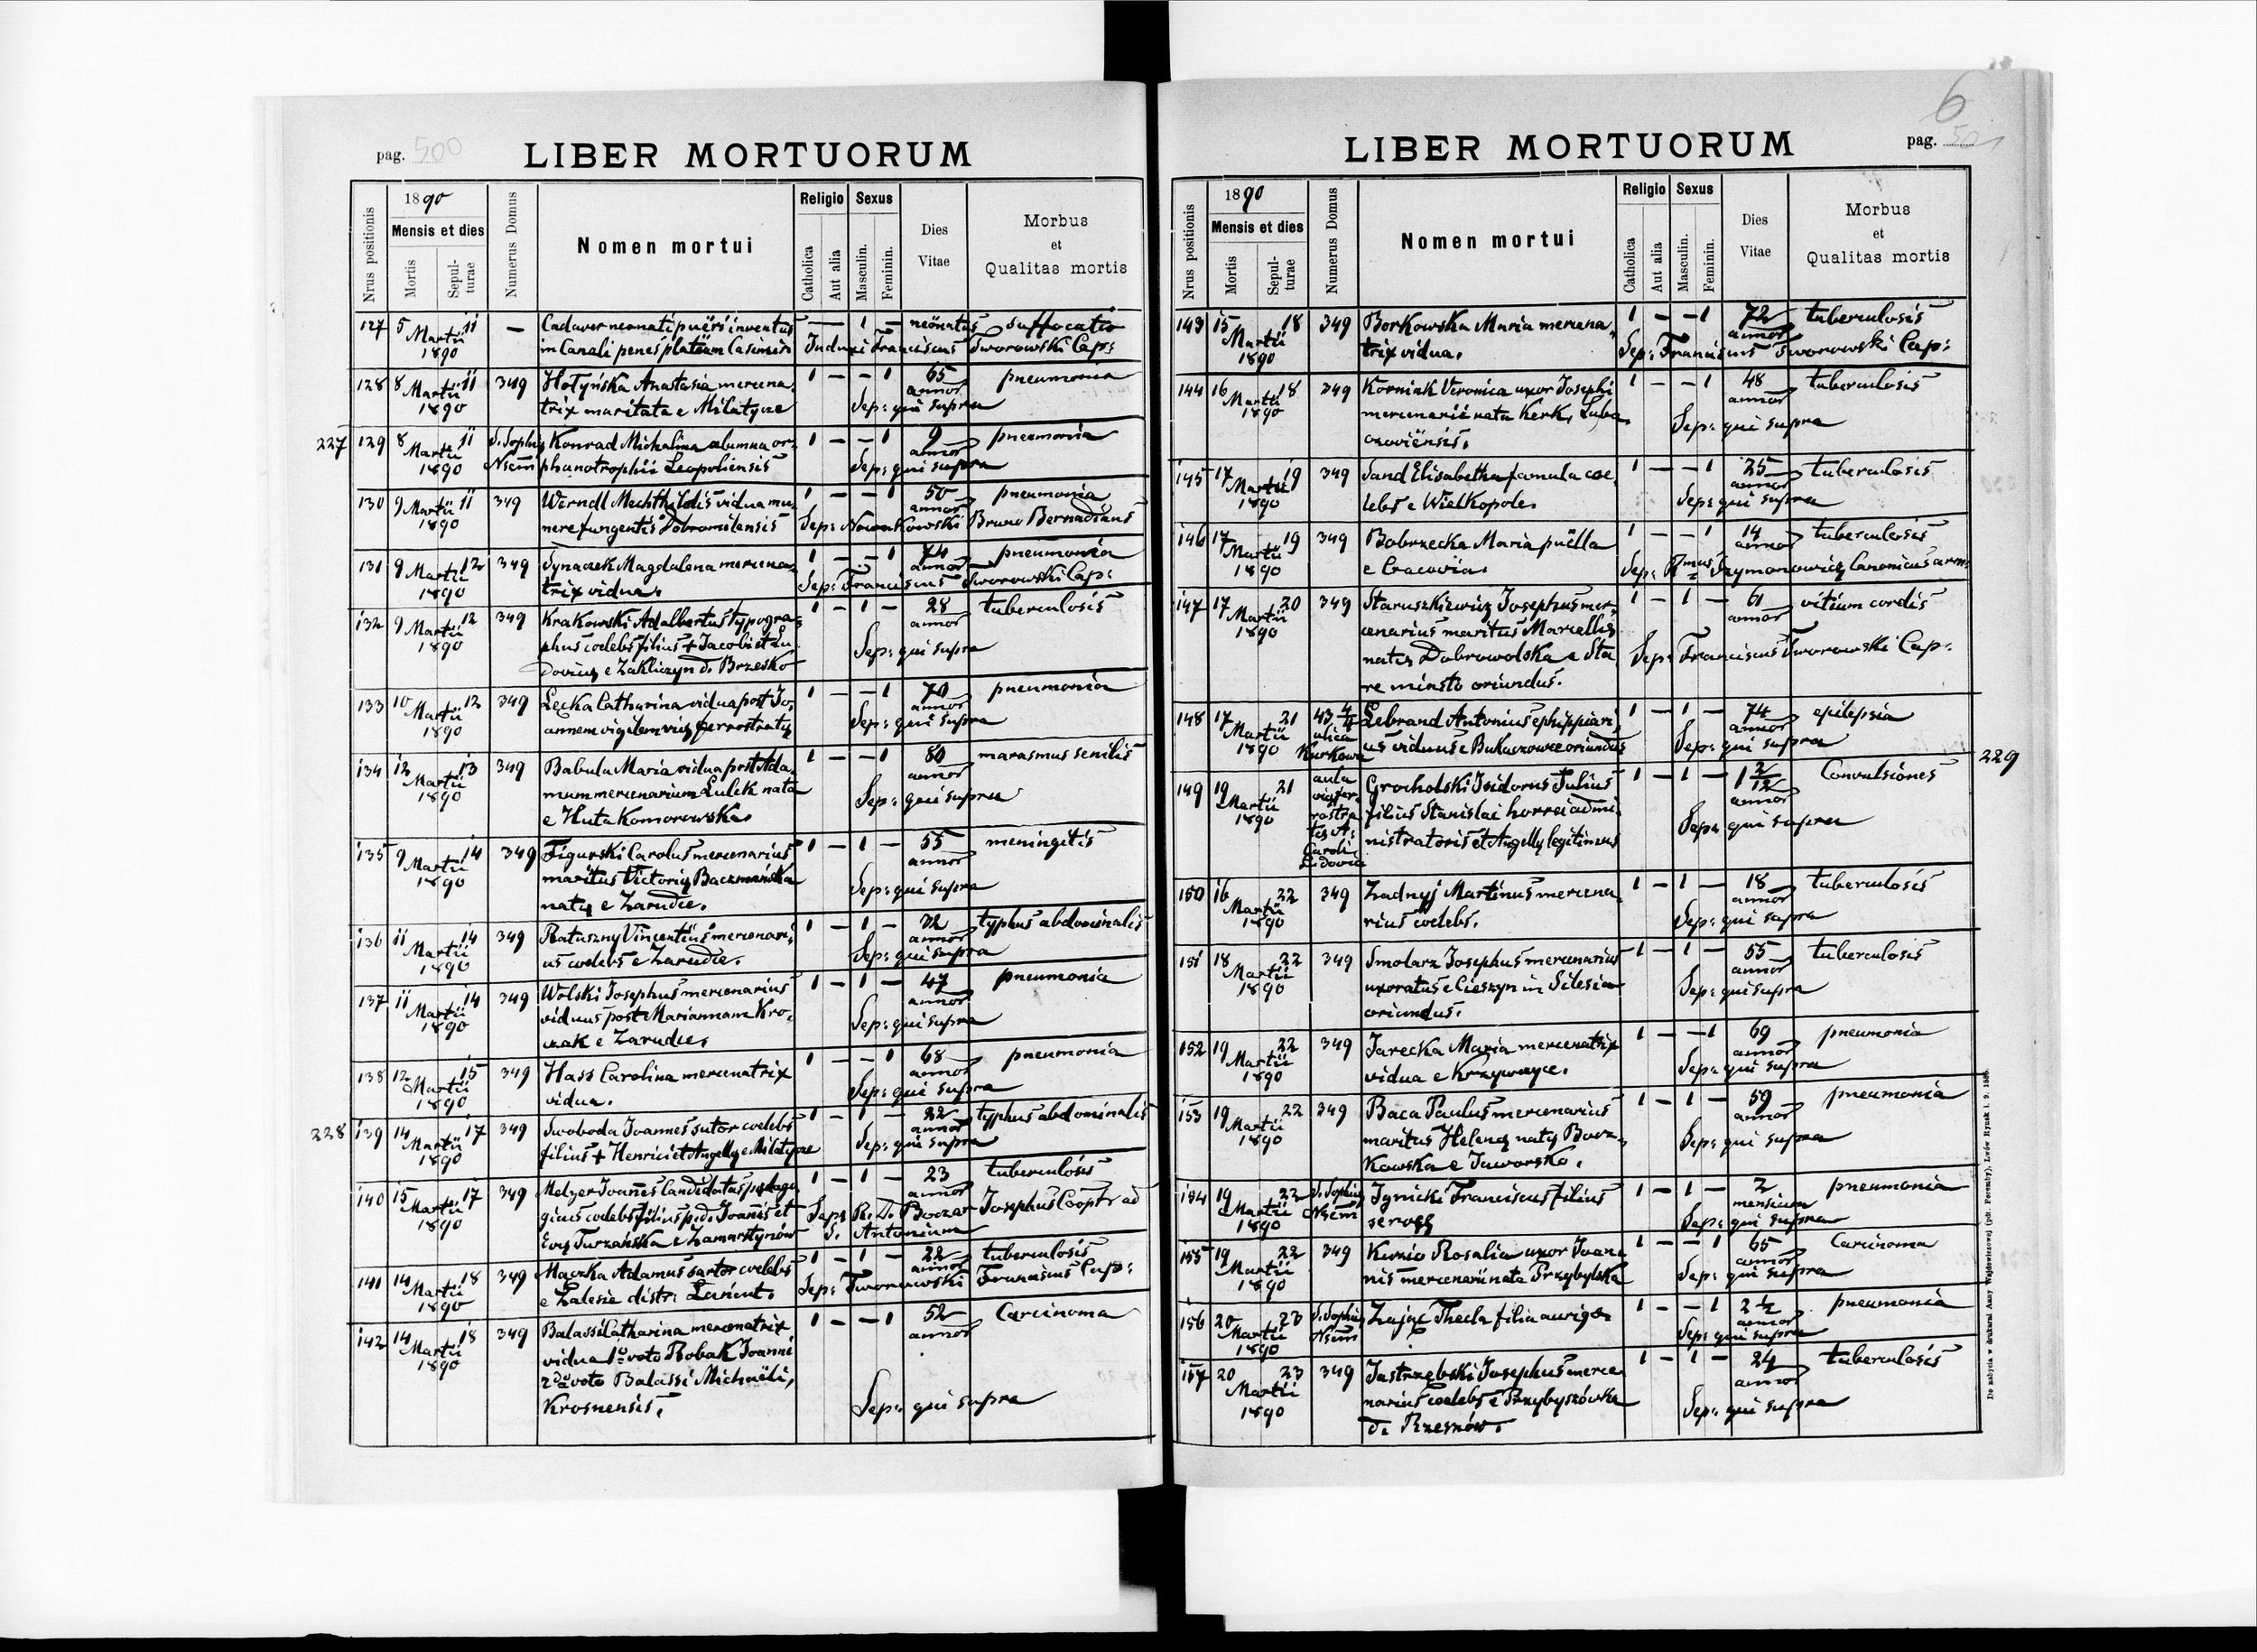 pag. 500
LIBER MORTUORUM
Nrus positionis
1890
Mensis et dies
Mortis
Sepulturae
Numerus Domus
Nomen mortui
Religio
Catholica
Aut alia
Sexus
Masculin.
Feminin.
Dies
Vitae
Morbus
et
Qualitas mortis
127 5 Martii 11 — Cadaver neonati pueri inventus — 1 — neonatus suffocatio
1890 in Canali penes plateam Casimiri Induxi Franciscus Sworowski Cap:
128 8 Martii 11 349 Hołyńska Anastasia mercena, 1 — — 1 65 pneumonia
1890 trix maritata e Milatycze annor
Sep: qui supra
227
129 8 Martii 11 S. Sophiæ Konrad Michalina alumna or, 1 — — 1 9 pneumonia
1890 Nsem phanotrophii Leopoliensis annor
Sep: qui supra
130 9 Martii 11 349 Werndl Mechthildis vidua mu, 1 — — 1 50 pneumonia
1890 nere fungentis Dobromilensis annor
Sep: Nowakowski Bruno Bernadinus
131 9 Martii 12 349 Synaczek Magdalena mercena, 1 — — 1 74 pneumonia
1890 trix vidua. annor
Sep: Franciscus Sworowski Cap:
132 9 Martii 12 349 Krakowski Adalbertus typogra, 1 — 1 — 28 tuberculosis
1890 phus coelebs filius + Jacobi et Lu annor
dovicæ e Zakliczyn d. Brzesko Sep: qui supra
133 10 Martii 12 349 Łęcka Catharina vidua post Jo, 1 — — 1 70 pneumonia
1890 annem vigilem viæ ferrostratæ annor
Sep: qui supra
134 12 Martii 13 349 Babula Maria vidua post Ada, 1 — — 1 80 marasmus senilis
1890 mum mercenarium Lulek nata annor
e Huta Komorowska. Sep: qui supra
135 9 Martii 14 349 Figurski Carolus mercenarius 1 — 1 — 55 meningitis
1890 maritus Victoriæ Baczmańska annor
natæ e Zarudie. Sep: qui supra
136 11 Martii 14 349 Ratuszny Vincentius mercenari, 1 — 1 — typhus abdominalis
1890 us coelebs e Zarudie. annor
Sep: qui supra
137 11 Martii 14 349 Wolski Josephus mercenarius 1 — 1 — 47 pneumonia
1890 viduus post Mariannam Kro, annor
czak e Zarudie. Sep: qui supra
138 12 Martii 15 349 Hass Carolina mercenatrix 1 — — 1 68 pneumonia
1890 vidua. annor
Sep: qui supra
228
139 14 Martii 17 349 Swoboda Joannes sutor coelebs 1 — 1 — 22 typhus abdominalis
1890 filius + Henrici et Angelæ e Milatycze annor
Sep: qui supra
140 15 Martii 17 349 Melzer Joannes Candidatus pædago 1 — 1 — 23 tuberculosis
1890 gicus coelebs filius p.d. Joannis et annor
Evæ Turzańska e Zamarstynów Sep: R. D. Boczar Josephus Cooptr ad
S. Antonium
141 14 Martii 18 349 Maczka Adamus sartor coelebs 1 — 1 — 22 tuberculosis
1890 e Zalesie distr. Łańcut. annor
Sep: Sworowski Franciscus Cap:
142 14 Martii 18 349 Balassi Catharina mercenatrix 1 — — 1 52 Carcinoma
1890 vidua 1º voto Robak Joanni annor
2do voto Balassi Michaëli,
Krosnensis. Sep: qui supra
6
pag. 501
LIBER MORTUORUM
Nrus positionis
1890
Mensis et dies
Mortis
Sepulturae
Numerus Domus
Nomen mortui
Religio
Catholica
Aut alia
Sexus
Masculin.
Feminin.
Dies
Vitae
Morbus
et
Qualitas mortis
143 15 Martii 18 349 Borkowska Maria mercena, 1 — — 1 72 tuberculosis
1890 trix vidua. annor
Sep: Franciscus Sworowski Cap:
144 16 Martii 18 349 Korniak Veronica uxor Josephi 1 — — 1 48 tuberculosis
1890 mercenarii nata Kerk, Luba annor
czoviensis. Sep: qui supra
145 17 Martii 19 349 Sand Elisabetha famula coe, 1 — — 1 25 tuberculosis
1890 lebs e Wielkopole. annor
Sep: qui supra
146 17 Martii 19 349 Bobrzecka Maria puella 1 — — 1 14 tuberculosis
1890 e Cracovia. annor
Sep: Rmus Szymonowicz Canonicus arm:
147 17 Martii 20 349 Staruszkiewicz Josephus mer, 1 — 1 — 61 vitium cordis
1890 cenarius maritus Marcellæ annor
natæ Dobrowolska e Sta Sep: Franciscus Sworowski Cap:
re miasto oriundus.
148 17 Martii 21 43 4/4 Lebrand Antonius ephippiari, 1 — 1 — 74 epilepsia
1890 ulica Kurkowa us viduus e Bukaczowce oriundus annor
Sep: qui supra
229
149 19 Martii 21 aula viæ fer, rostra tæ A. Caroli Ludovici Grocholski Isidorus Julius 1 — 1 — 1 2/12 Convulsiones
1890 filius Stanislai horrei admi annor
nistratoris et Angelæ legitimus Sep: qui supra
150 16 Martii 22 349 Zadnyj Martinus mercena, 1 — 1 — 18 tuberculosis
1890 rius coelebs. annor
Sep: qui supra
151 18 Martii 22 349 Smolarz Josephus mercenarius 1 — 1 — 55 tuberculosis
1890 uxoratus e Cieszyn in Silesia annor
oriundus. Sep: qui supra
152 19 Martii 22 349 Jarecka Maria mercenatrix 1 — — 1 69 pneumonia
1890 vidua e Krzywczyce. annor
Sep: qui supra
153 19 Martii 22 349 Baca Paulus mercenarius 1 — 1 — 59 pneumonia
1890 maritus Helenæ natæ Bocz, annor
kowska e Jaworsko. Sep: qui supra
154 19 Martii 22 S. Sophiæ Nsem Ignicki Franciscus filius 1 — 1 — 2 pneumonia
1890 servæ mensium
Sep: qui supra
155 19 Martii 22 349 Kuzio Rosalia uxor Joan, 1 — — 1 65 Carcinoma
1890 nis mercenarii nata Przybylska annor
Sep: qui supra
156 20 Martii 23 S. Sophiæ Nsem Zając Thecla filia aurigæ 1 — — 1 2 1/2 pneumonia
1890 annor
Sep: qui supra
157 20 Martii 23 349 Jastrzębski Josephus merce 1 — 1 — 24 tuberculosis
1890 narius coelebs e Przybyszówka annor
d. Rzeszów. Sep: qui supra
Do nabycia w drukarni Anny Wajdowiczowej